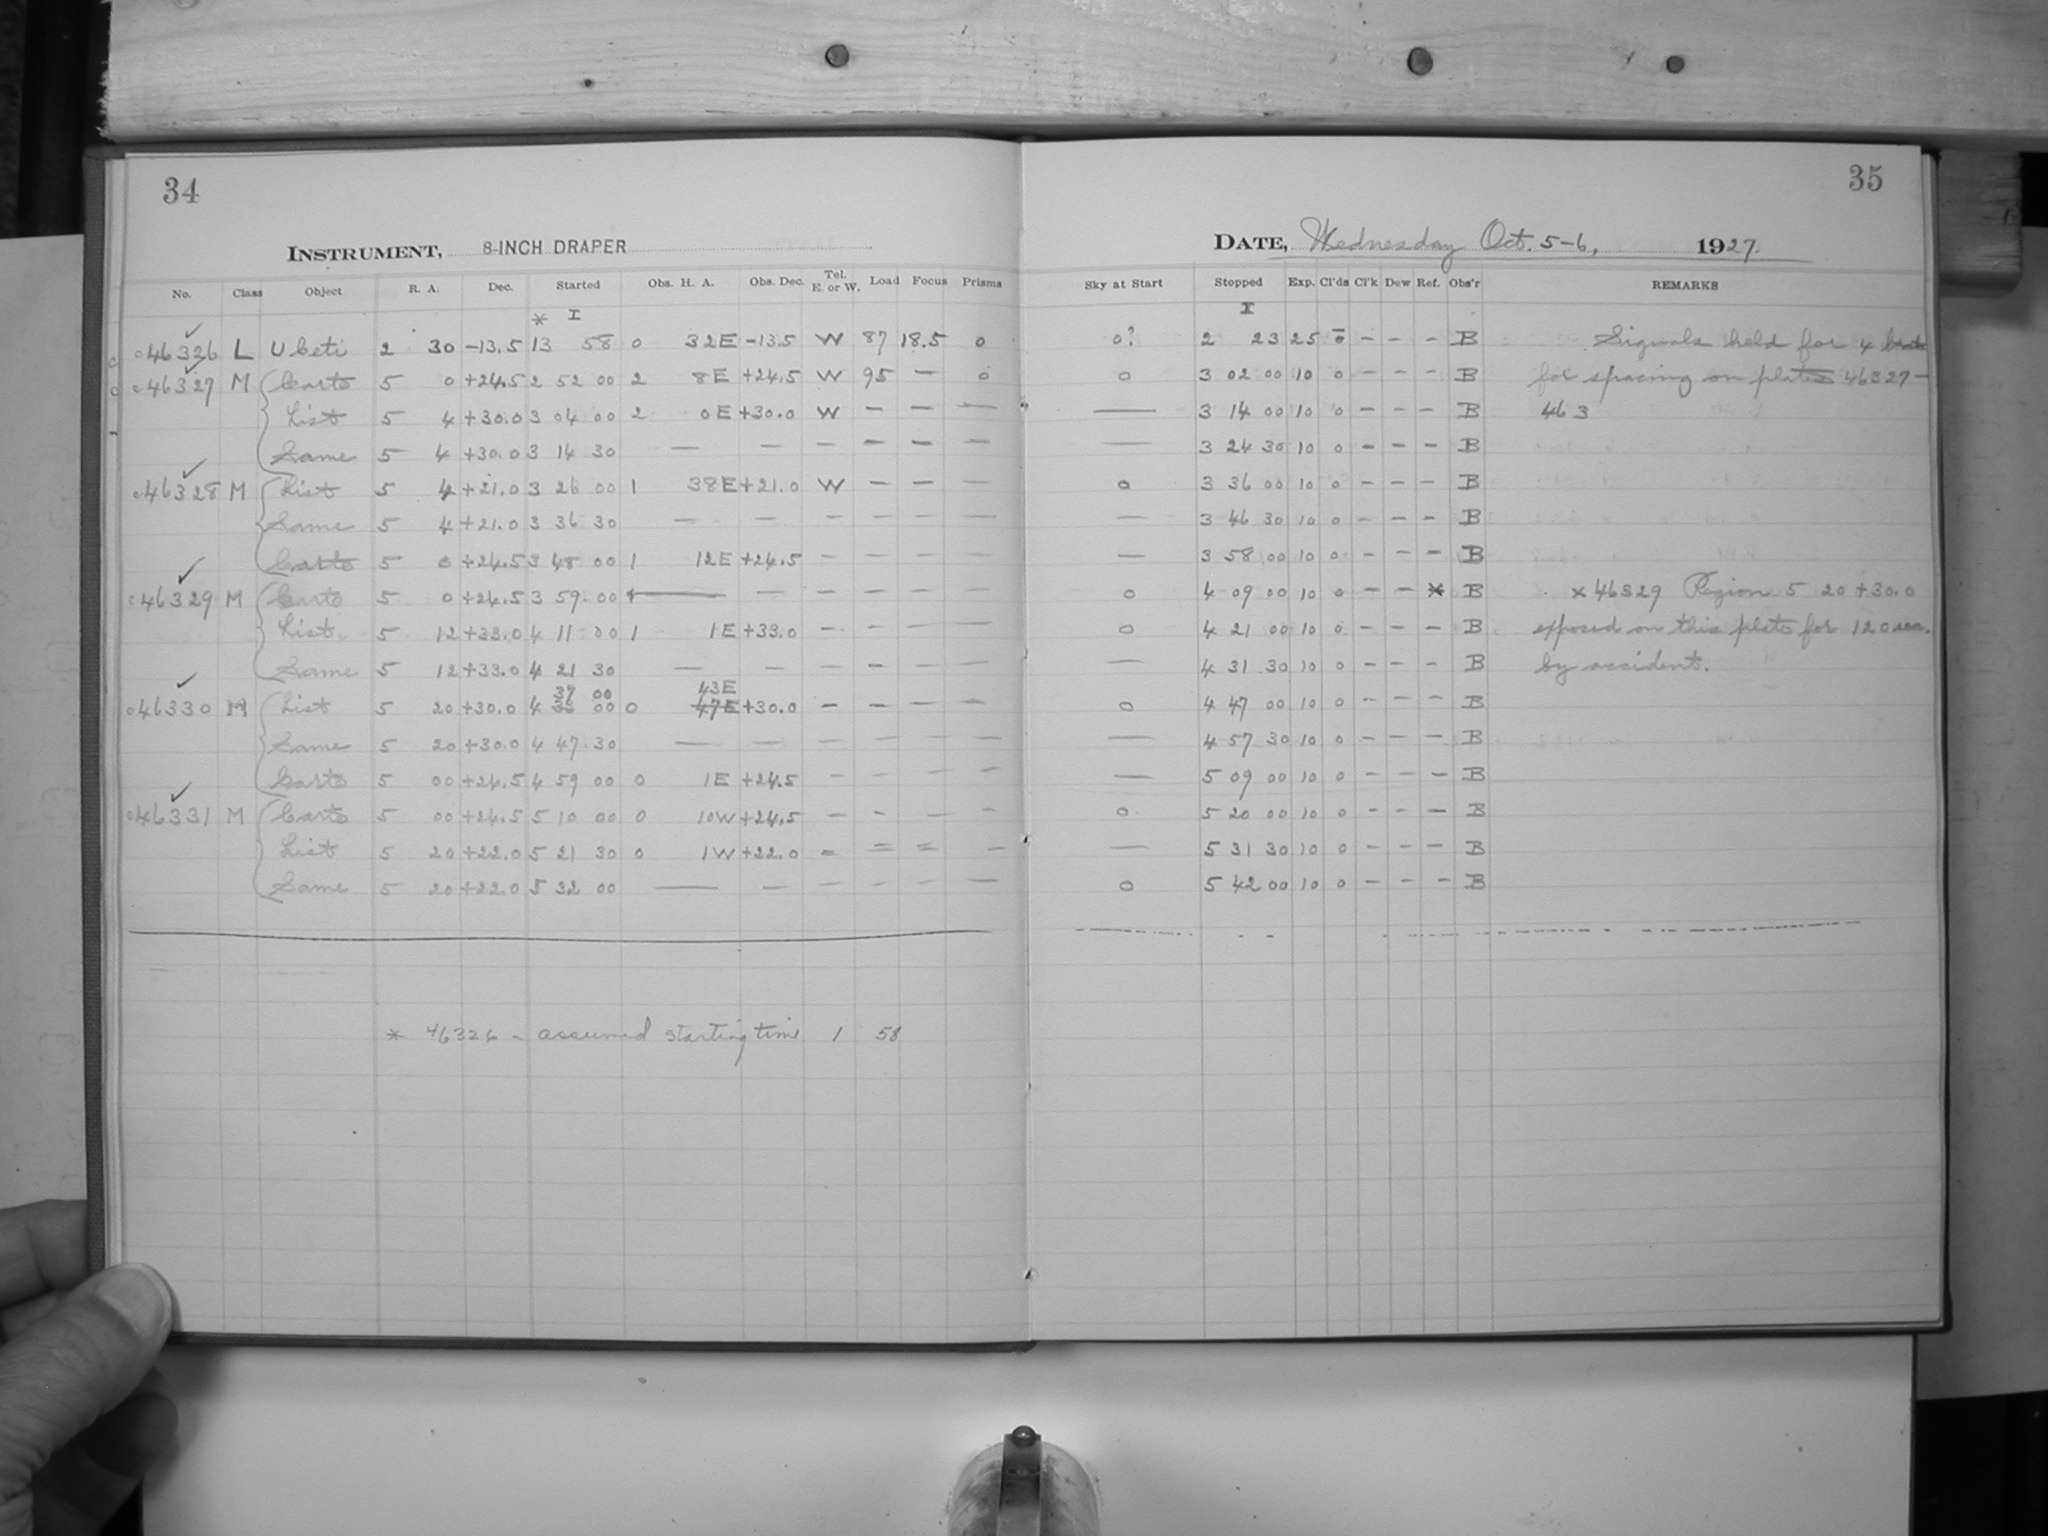 34
INSTRUMENT, 8-INCH DRAPER
No. Class Object R. A. Dec. Started Obs. H. A. Obs. Dec. Tel. E. or W. Load Focus Prisms
* I
46326 L U Ceti 2 30 -13.5 13 58 0 32E -13.5 W 87 18.5 0
46327 M 5 0 +24.5 2 52 00 2 8E +24.5 W 95 — 0
List 5 4 +30.0 3 04 00 2 0E +30.0 W — — —
Same 5 4 +30.0 3 14 30 — — — — — —
46328 M List 5 4 +21.0 3 26 00 1 38E +21.0 W — — —
Same 5 4 +21.0 3 36 30 — — — — — —
5 0 +24.5 3 48 00 1 12E +24.5 — — — —
46329 M 5 0 +24.5 3 59 00 — — — — — —
List 5 12 +33.0 4 11 00 1 1E +33.0 — — — —
Same 5 12 +33.0 4 21 30 — — — — — —
37 00 43E
46330 M List 5 20 +30.0 4 00 0 47E +30.0 — — — —
Same 5 20 +30.0 4 47 30 — — — — — —
5 00 +24.5 4 59 00 0 1E +24.5 — — — —
46331 M 5 00 +24.5 5 10 00 0 10W +24.5 — - — —
List 5 20 +22.0 5 21 30 0 1W +22.0 = = = —
Same 5 20 +22.0 5 32 00 — — — — — —
* 46326 - assumed starting time 1 58
35
DATE, Wednesday Oct. 5-6, 1927.
Sky at Start Stopped Exp. Cl'ds Cl'k Dew Ref. Obs'r REMARKS
I
0? 2 23 25 0 - - - B Signals held for 4
0 3 02 00 10 0 - - - B for spacing on plates 46327—
— 3 14 00 10 0 - - - B 463
— 3 24 30 10 0 - - - B
0 3 36 00 10 0 - - - B
— 3 46 30 10 0 - - - B
— 3 58 00 10 0 - - - B
0 4 09 00 10 0 - - * B x 46329 Region 5 20 +30.0
0 4 21 00 10 0 - - - B exposed on this plate for 120 sec.
— 4 31 30 10 0 - - - B by accident.
0 4 47 00 10 0 - - - B
— 4 57 30 10 0 - - - B
— 5 09 00 10 0 - - - B
0 5 20 00 10 0 - - - B
— 5 31 30 10 0 - - - B
0 5 42 00 10 0 - - - B